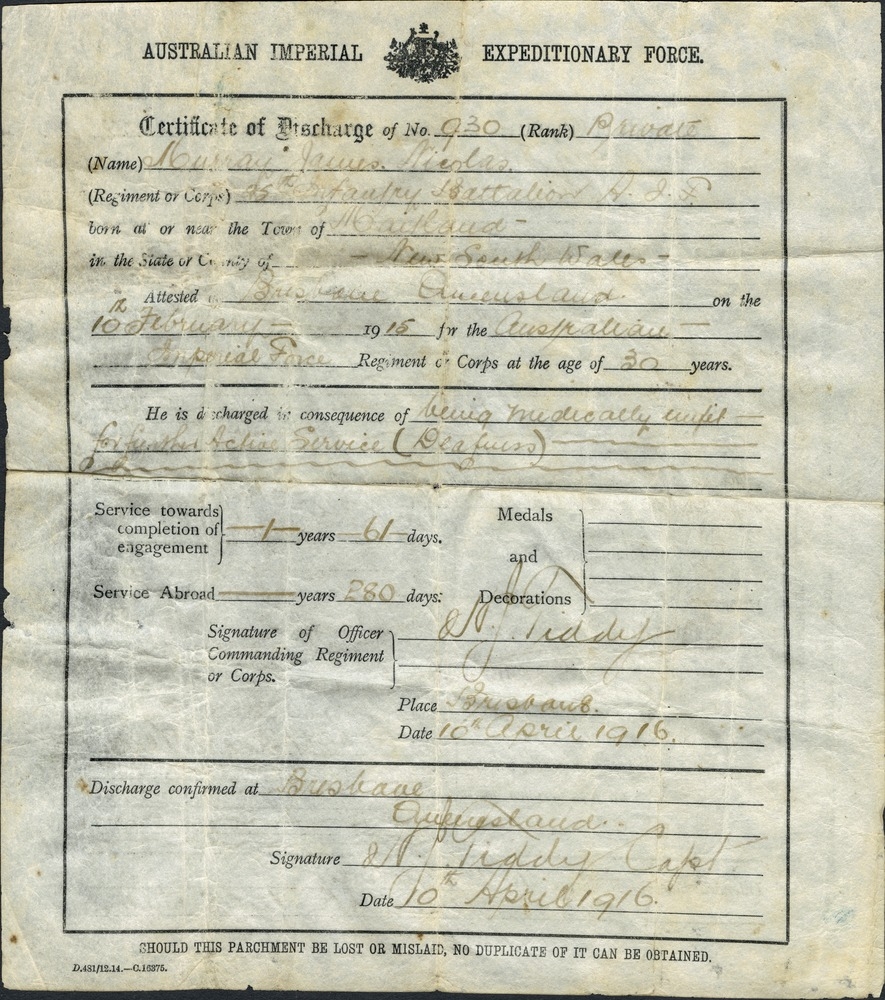 AUSTRALIAN IMPERIAL EXPEDITIONARY FORCE.
Certificate of Discharge of No. 930 (Rank) Private
(Name) Murray James Nicolas.
(Regiment or Corps) 25th Infantry Battalion A. I. F.
born at or near the Town of Maitland
in the State or County of New South Wales
Attested Brisbane Queensland on the
10th February 1915 for the Australian
Imperial Force Regiment or Corps at the age of 30 years.
He is discharged in consequence of being medically unfit
for further Active Service (Deafness)
Service towards completion of engagement 1 years 61 days.
Medals and Decorations
Service Abroad years 280 days.
Signature of Officer Commanding Regiment or Corps. Tiddy
Place Brisbane.
Date 10th April 1916.
Discharge confirmed at Brisbane
Queensland.
Signature Tiddy Capt
Date 10th April 1916.
SHOULD THIS PARCHMENT BE LOST OR MISLAID, NO DUPLICATE OF IT CAN BE OBTAINED.
D.481/12.14.—C.16375.